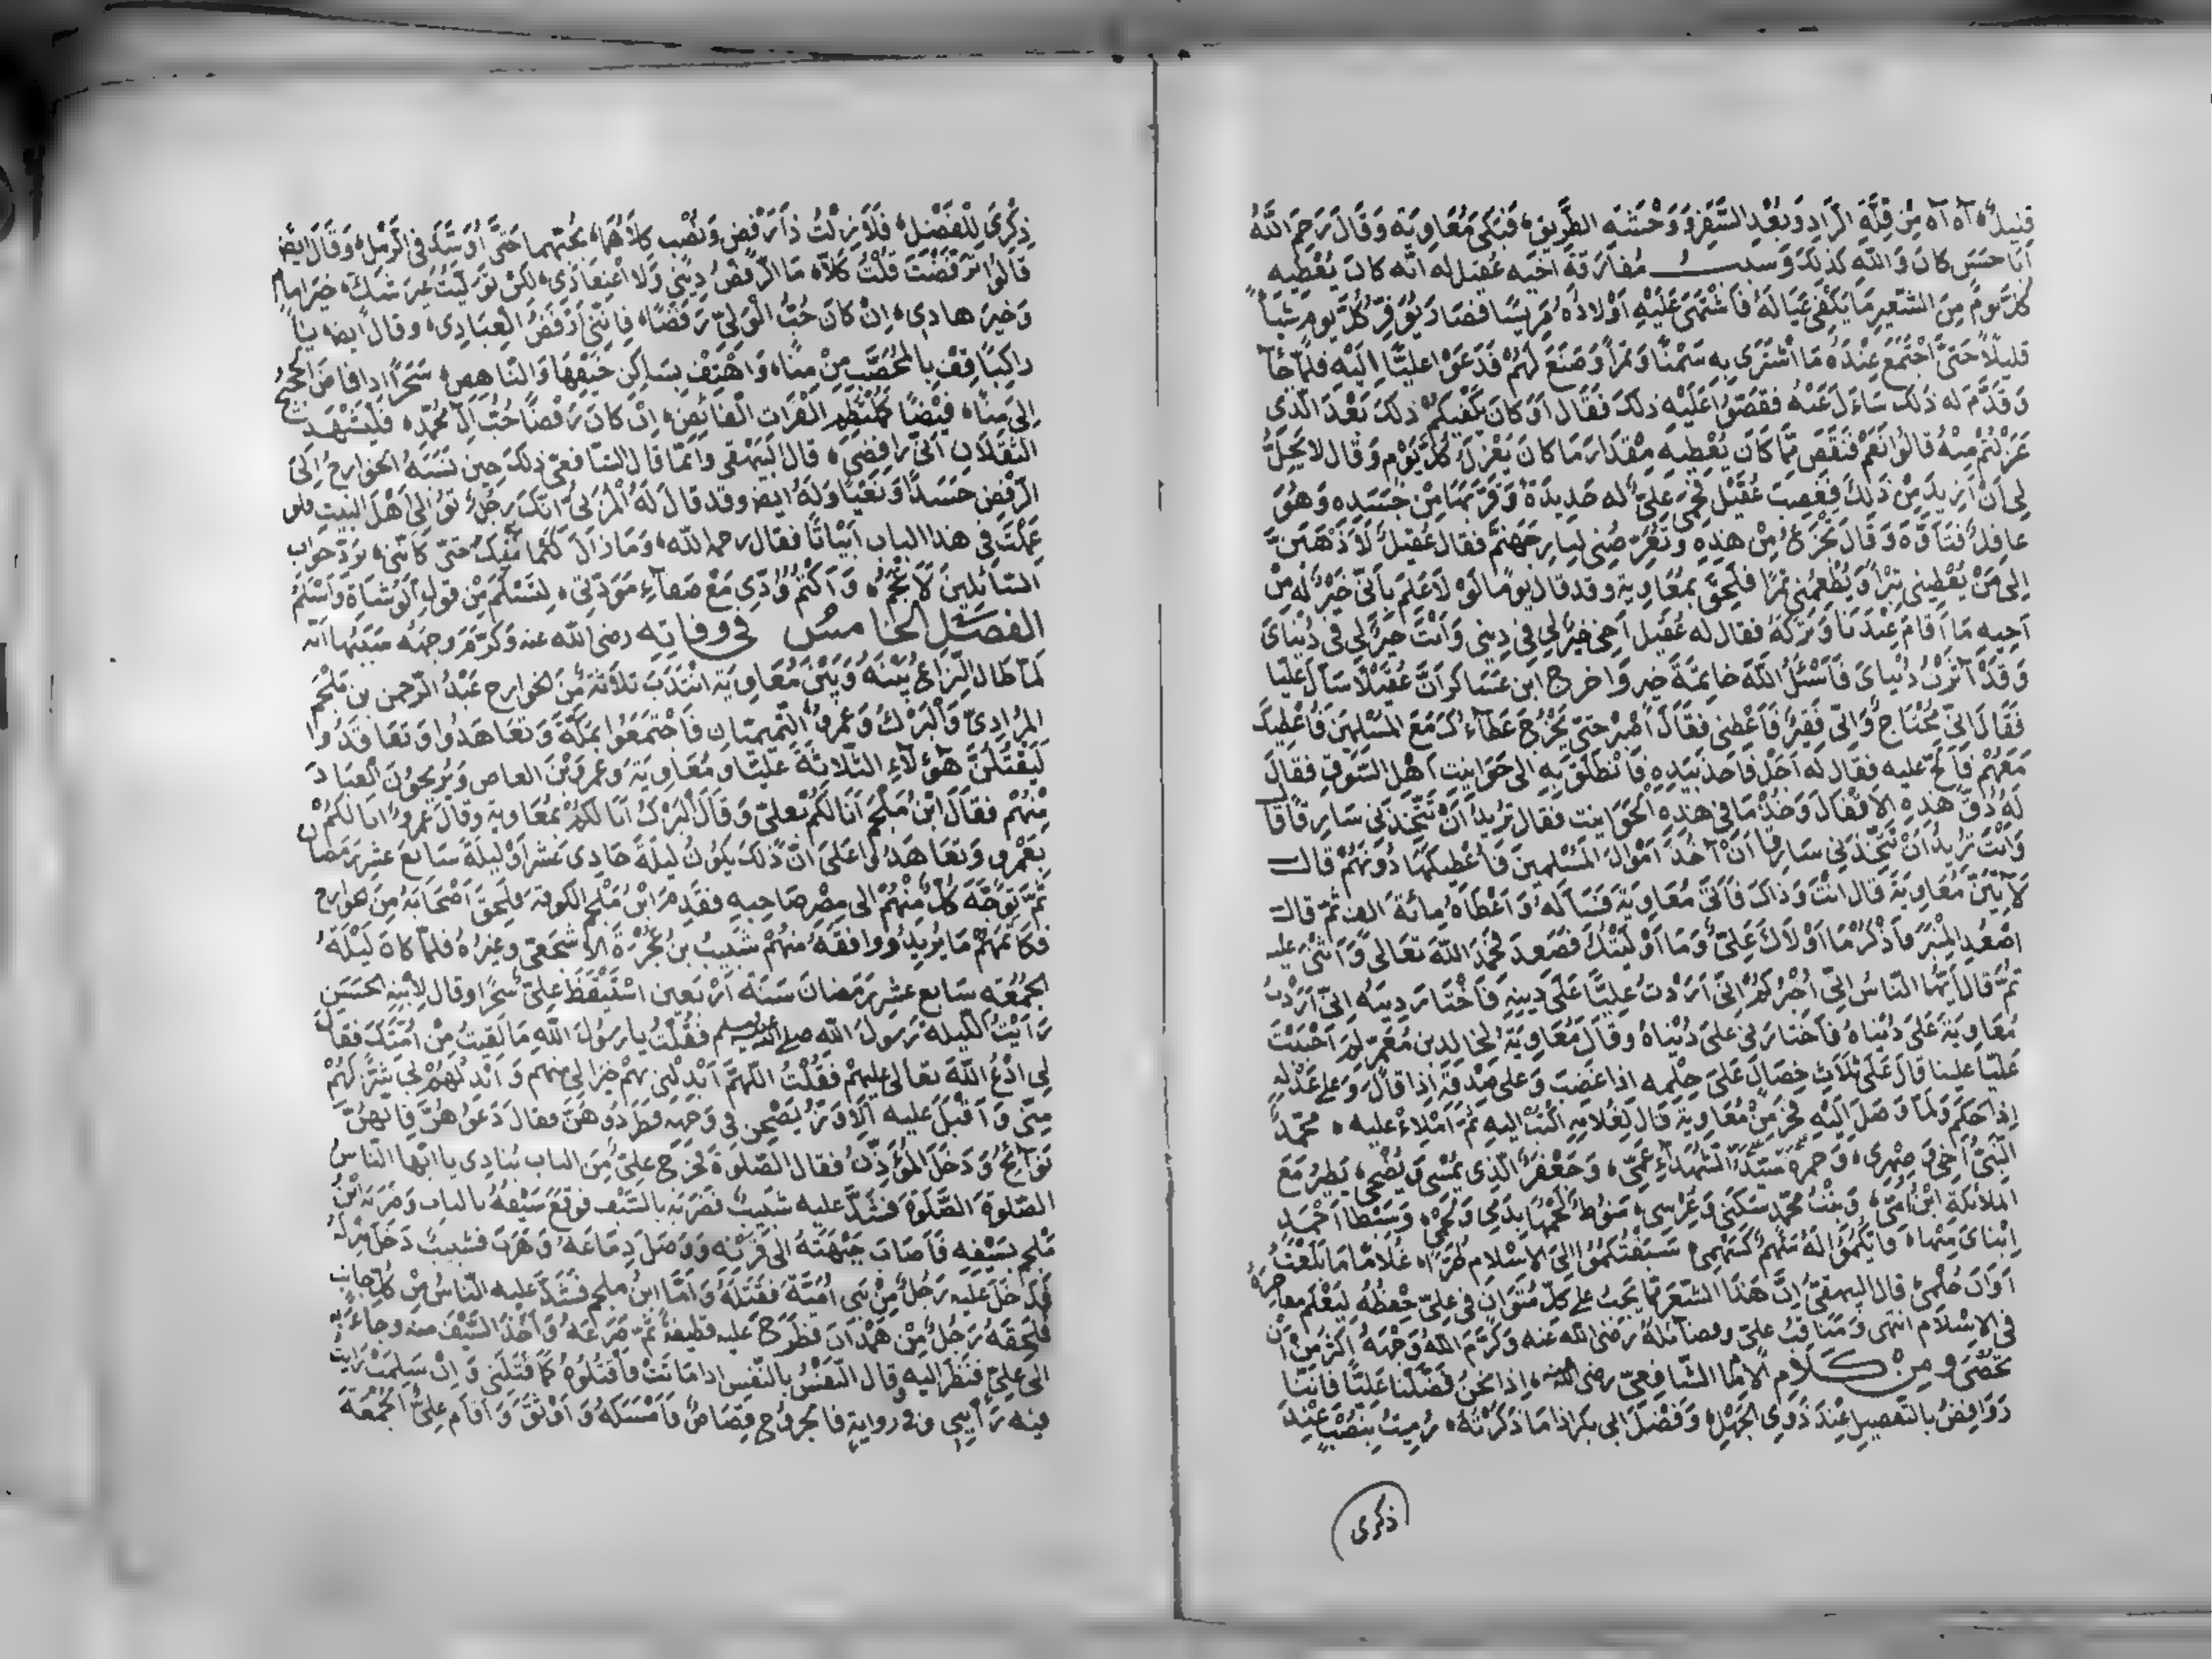 قليل آه آه من قِلَّةِ الزَّادِ وَبُعْدِ السَّفَرِ وَوَحْشَةِ الطَّرِيقِ فَبَكَى مُعَاوِيَة وَقَالَ رَحِمَ اللَّهُ
أبَا حَسَنٍ كَانَ وَاللَّهِ كَذلِكَ وَسبب مُفارَقَة أخيه عُقيل له انّه كان يُعْطِيهِ
كلَّ يَومٍ مِنَ الشَّعِيرِ مَا يَكْفِي عيَالهُ فَاشْتَهَى عَلَيْهِ أوْلادُه مَريسًا فصَارَ يُوَفِّرُ كُلَّ يومٍ شيأً
قليلًا حَتَّى اجْتَمَعَ عِنْدَهُ مَا اشْتَرَى به سَمْنًا وَتمرًا وَصَنَعَ لَهُمْ فَدَعَوْا عليًّا إليه فلمّا جَآ
وَقَدَّمَ له ذلك سَاءَلَ عَنْهُ فقصّوا عَلَيْهِ ذلكَ فَقَال أوَكانَ يكْفيكمْ ذلكَ بَعْدَ الَّذي
عَزَلْتُمْ مِنْهُ قالُوا نَعَمْ فَنَقَصَ ممّا كَانَ يُعْطِيهِ مِقْدَارَ مَا كانَ يَعْزِلُ كُلَّ يَوْمٍ وَقال لا يَحِلُّ
لِي أنْ أزِيدَ مِنْ ذَلِكَ فَغَضِبَ عُقَيْل فحَمى عَلِيٌّ له حَدِيدَةً وَقَرَّبَهَا مِنْ جَسَدِه وَهُوَ
غافِلٌ فَتَأَوَّهَ وَقَالَ تَجْزَعُ مِنْ هَذِهِ وَتُعَرِّضُنِي لِنارِ جَهَنَّمَ فقال عُقَيل لأذْهَبَنَّ
إلى مَنْ يُعْطِينِي تِبْرًا وَيُطْعِمُنِي تمْرًا فَلَحِقَ بمُعَاوِية وقد قال يومًا لَوْ لا عَلِمَ بأنّي خَيْرٌ لَه مِنْ
أخِيهِ مَا أقَامَ عِنْدَنَا وَتَرَكَهُ فقال له عُقَيل أخِي خَيْرٌ لِي فِي دِينِي وَأنْتَ خَيْرٌ لِي فِي دُنْيَايَ
وَقَدْ آثَرْتُ دُنْيايَ فَأسْئَلُ اللَّهَ خاتِمَةَ خيرٍ وَاخرج ابن عَسَاكر أنَّ عُقَيْلًا سَألَ عَلِيًّا
فَقَالَ إنّي مُحْتَاجٌ وَإنّي فَقِيرٌ فَأعْطِني فَقَالَ اصْبِرْ حَتَّى يَخْرُجَ عَطَاءُكَ مَعَ المُسْلِمينَ فَأُعْطِيكَ
مَعَهُمْ فَألَحَّ عليه فقال لرَجُل خُذ بيَدِهِ فَانْطَلِقْ بِهِ إلى حَوَانِيتِ أهْلِ السُّوقِ فقالَ
لَهُ دُقَّ هَذِهِ الأقْفَالَ وَخُذْ مَا فِي هذِهِ الحَوَانِيتِ فقال تُرِيدُ أنْ تَتَّخِذَنِي سَارِقًا قالَ
وَأنْتَ تُرِيدُ أنْ تَتَّخِذَنِي سَارِقًا أنْ آخُذَ أمْوَالَ المُسْلِمِينَ فَأُعْطِيكَهَا دُونَهُمْ قالَ
لَآتِيَنَّ مُعَاوِيَةَ قَالَ أنْتَ وَذاكَ فَأتَى مُعَاوِيَةَ فَسَألَهُ وَأعْطَاهُ مِائَةَ ألفٍ ثمّ قالَ
اصْعَدِ المِنْبَرَ فَاذْكُرْ مَا أوْلَاكَ عَلِيٌّ وَمَا أوْلَيْتُكَ فَصَعِدَ فحَمِدَ اللَّهَ تَعَالَى وَأثْنَى عليه
ثمّ قال أيُّهَا النَّاسُ إنّي أُخْبِرُكُمْ إنّي أرَدْتُ عَلِيًّا عَلَى دِينِهِ فَاخْتَارَ دِينَهُ إنّي أرَدْتُ
مُعَاوِيَةَ عَلَى دُنْيَاهُ فَاخْتَارَني عَلَى دُنْيَاهُ وَقالَ مُعَاوِيَةُ لِخَالِدِ بن مُعَمِّر لِمَ أحْبَبْتَ
عَلِيًّا علينا قالَ عَلَى ثَلَاثِ خِصَالٍ عَلَى حِلْمِهِ إذا غَضِبَ وَعَلَى صِدْقِهِ إذا قَالَ وَعلى عَدْلِهِ
إذا حَكَمَ وَلمّا وَصَلَ إليْهِ فخرٌ مِنْ مُعَاوِيَةَ قَالَ لِغُلَامِهِ اكْتُبْ إليهِ ثمّ أمْلاء عليه مُحَمّدٌ
النَّبِيُّ أخِي وَصِهْرِي وَحَمْزَةُ سَيِّدُ الشُّهَدَاءِ عَمِّي وَجَعْفَرٌ الَّذِي يُمْسِي وَيُضْحِي يَطِيرُ مَعَ
الملائكَةِ ابْنُ أُمِّي وَبِنْتُ مُحَمَّد سَكَنِي وَعُرْسِي مَنُوطٌ لَحْمُهَا بِدَمِي وَلَحْمِي وَسِبْطَا أحْمَدٍ
ابْنَايَ مِنْهَا فَأيُّكُمُوا لَهُ سَهْمٌ كَسَهْمِي سَبَقْتُكُمُوا إلَى الإسْلَامِ طُرًّا غُلَامًا مَا بَلَغْتُ
أوَانَ حُلْمِي قال البيهقيُّ إنَّ هَذَا الشِّعْرَ ممّا يَجِبُ على كلّ مُتَوَانٍ فِي عَلِيّ حِفْظُهُ لِيَعْلَمَ مفاخِرَهُ
فِي الإسْلَامِ انتهى وَمَنَاقِبُ عَلِيّ وفضَآئلهُ رَضيَ اللَّه عَنه وَكَرَّمَ اللهُ وَجْهَهُ أكثَرُ مِنْ أنْ
تُحْصَى وَمِنْ كَلَامِ الامَامِ الشَّافِعِيّ رضي الله عنه إذا نَحْنُ فَضَّلْنَا عَلِيًّا فَإنَّنَا
رَوَافِضُ بالتَّفضِيلِ عِنْدَ ذَوِي الجَهْلِ وَفَضْل أبي بَكر إذا مَا ذَكَرْتُهُ رُمِيتُ بِنَصْبٍ عِنْدَ
ذكرى
ذِكْرَى لِلْفَضْلِ فَلَا زِلْتُ ذَا رَفْضٍ وَنَصْبٍ كِلَاهُمَا بحُبّهِما حَتَّى أُوَسَّدَ فِي الرَّمْلِ وَقَالَ ايض
قالُوا تَرَفَّضْتَ قُلْتُ كَلَّا مَا الرَّفْضُ دِينِي وَلَا اعْتِقَادِي لَكِنْ تَوَلَّيْتُ غَيرَ شَكّ خَيرَ إمَام
وَخَيرَ هَادِي إنْ كَانَ حُبُّ الْوَلِيّ رَفْضًا فَإنَّنِي أرْفَضُ الْعِبَادِي وقالَ ايضا يَا
رَاكِبًا قِفْ بِالمُحَصَّبِ مِنْ مِنًا وَاهْتِفْ بِسَاكِنِ خَيْفِهَا وَالنَّاهِضِ سَحَرًا إذا فَاضَ الحَجِيجُ
إلَى مِنًا فَيْضًا كَمُلْتَطِمِ الْفُرَاتِ الْفَائِضِ إنْ كَانَ رَفْضًا حُبُّ آلِ مُحَمّدٍ فَلْيَشْهَدِ
الثَّقَلَانِ أنّي رَافِضِيّ قالَ البَيْهَقِي وَإنّمَا قَالَ الشّافعيّ ذلِكَ حِينَ نَسَبَهُ الخوَارِجُ إلَى
الرّفْضِ حَسَدًا وَبَغْيًا وَلَهُ ايض وقد قالَ لَهُ الْمُزَنِيّ إنّكَ رَجُلٌ تُوَالِي أهْلَ البَيْتِ فلو
عَمِلْتَ فِي هذا البابِ أبْيَاتًا فقال رحمه الله وَمَا زَالَ كَتْمًا مِنْكَ حَتّى كَأنّنِي بِرَدّ جَوابِ
السَّائِلِينَ لَأعْجَمُ وَأكْتُمُ وُدِّي مَعْ صَفَاءِ مَوَدَّتِي لِتَسْلَمَ مِنْ قَوْلِ الْوُشَاةِ وَأسْلَمُ
الفصْلُ الخَامسُ في وفاتِهِ رضيَ اللّه عنه وَكَرّمَ وجهَهُ سَبَبُهَا أنّه
لمّا طَالَ النِّزَاعُ بَيْنَهُ وَبَيْنَ مُعَاوِيَةَ انْتَدَبَ ثَلَاثَةٌ مِنَ الخوارِج عَبْدُ الرّحمنِ بن مُلْجَمِ
المُرَادِيّ وَالْبُرَكُ وَعمرو التّمِيمِيّانِ فَاجْتَمَعُوا بمَكّةَ وَتَعَاهَدُوا وَتَعَاقَدُوا
لَيَقْتُلُنَّ هَؤُلَاءِ الثّلَاثَةَ عَلِيًّا وَمُعَاوِيَةَ وَعَمرو بْنَ العاص وَيُرِيحُونَ الْعِبَادَ
مِنْهُمْ فقالَ ابْنُ مُلْجَم أنَا لَكُمْ بعَلِيّ وَقَالَ الْبُرَكُ أنَا لكُمْ بمُعَاوِيةَ وقالَ عَمرو أنَا لَكُمْ
بِعَمْرو وَتَعَاهَدُوا عَلَى أنَّ ذَلِكَ يَكُونُ لَيْلَةَ حَادِي عَشَرَ أوْ لَيْلَةَ سَابِعَ عَشَرَ رَمَضَانَ
ثُمَّ تَوَجَّهَ كُلٌّ مِنْهُمْ إلى مِصْرِ صَاحِبِهِ فقَدِمَ ابْنُ مُلْجَم الكوفَةَ فَلَحِقَ أصْحَابَهُ مِنَ الخوارج
فكَاتَمَهُمْ مَا يُرِيدُ ووافقَهُ منهُمْ شَبِيبُ بن عُجْرَةَ الأشجَعيّ وغيرُهُ فلمّا كانَ لَيْلَةَ
الجمُعَةِ سَابِعَ عشر رمَضَانَ سَنَةَ أرْبَعِينَ اسْتَيْقَظَ عَلِيٌّ سَحَرًا وقالَ لِابْنِهِ الحَسَنِ
رَأيْتُ اللّيلَةَ رَسُولَ اللهِ صلى الله عليه وسلم فقُلْتُ يا رسُولَ اللهِ مَا لَقِيتُ مِنْ أُمَّتِكَ فقال
لِي ادْعُ اللهَ تعالى عليهِمْ فَقُلْتُ اللّهُمَّ أبْدِلْنِي بهِمْ خَيْرًا لِي منهم وَأبْدِلْهُمْ بي شَرًّا لَهُمْ
مِنّي وَأقْبَلَ عليه الإوَزّ يَصِحْنَ فِي وَجْهِهِ فطَرَدُوهُنَّ فقالَ دَعُوهُنَّ فَإنَّهُنَّ
نَوَائِحُ وَدَخَلَ المُؤَذِّنُ فقال الصّلوةَ فخَرَجَ عَلِيٌّ مِنَ البابِ يُنَادِي يا أيّها النّاسُ
الصّلوةَ الصّلوةَ فشَدَّ عليه شَبيبٌ فضَرَبَهُ بالسّيْفِ فوقَعَ سَيْفُهُ بالبابِ وَضَرَبَهُ ابْنُ
مُلْجَم بسَيْفِهِ فَأصَابَ جَبْهَتَهُ إلى قَرْنِهِ وَوَصَلَ دِمَاغَهُ وَهَرَبَ فشبِيبٌ دَخَلَ منزلَهُ
فَدَخَلَ عَلَيْهِ رَجُلٌ مِنْ بَنِي أُمَيّةَ فقَتَلَهُ وَأمّا ابنُ ملجم فشَدَّ عليه النّاسُ مِنْ كُلّ جانبٍ
فلَحِقَهُ رَجُلٌ مِنْ هَمْدَانَ فطَرَحَ عليه قطيفةً ثمّ صَرَعَهُ وَأخَذَ السّيْفَ منه وجاءَ به
إلى عليّ فنظَرَ إليه وقال النّفسُ بالنّفسِ إذا مَا مُتّ فَاقْتُلُوهُ كَمَا قتَلَنِي وَإنْ سَلِمْتُ رَأيْتُ
فيه رَأيِي وفي رِوَايةٍ فالجروحُ قِصَاصٌ فَأُمْسِكَ وَأُوثِقَ وَأقَامَ عَلِيٌّ الجُمُعَةَ